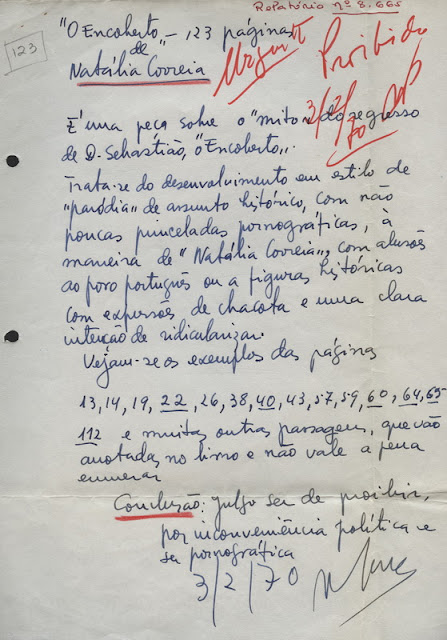 Relatório nº 8.665
123
"O Encoberto" – 123 páginas
de
Natália Correia
Urgente
Proibido
3/2/70
É uma peça sobre o "mito" do regresso
de D. Sebastião, "O Encoberto".
Trata-se do desenvolvimento em estilo de
"paródia" de assunto histórico, com não
poucas pinceladas pornográficas, à
maneira de "Natália Correia", com alusões
ao povo português ou a figuras históricas
com expressões de chacota e uma clara
intenção de ridicularizar.
Vejam-se os exemplos das páginas
13, 14, 19, 22, 26, 38, 40, 43, 57, 59, 60, 64, 65
112 e muitas outras passagens, que vão
anotadas no livro e não vale a pena
enumerar
Conclusão: julgo ser de proibir,
por inconveniência política e
ser pornográfica
3/2/70